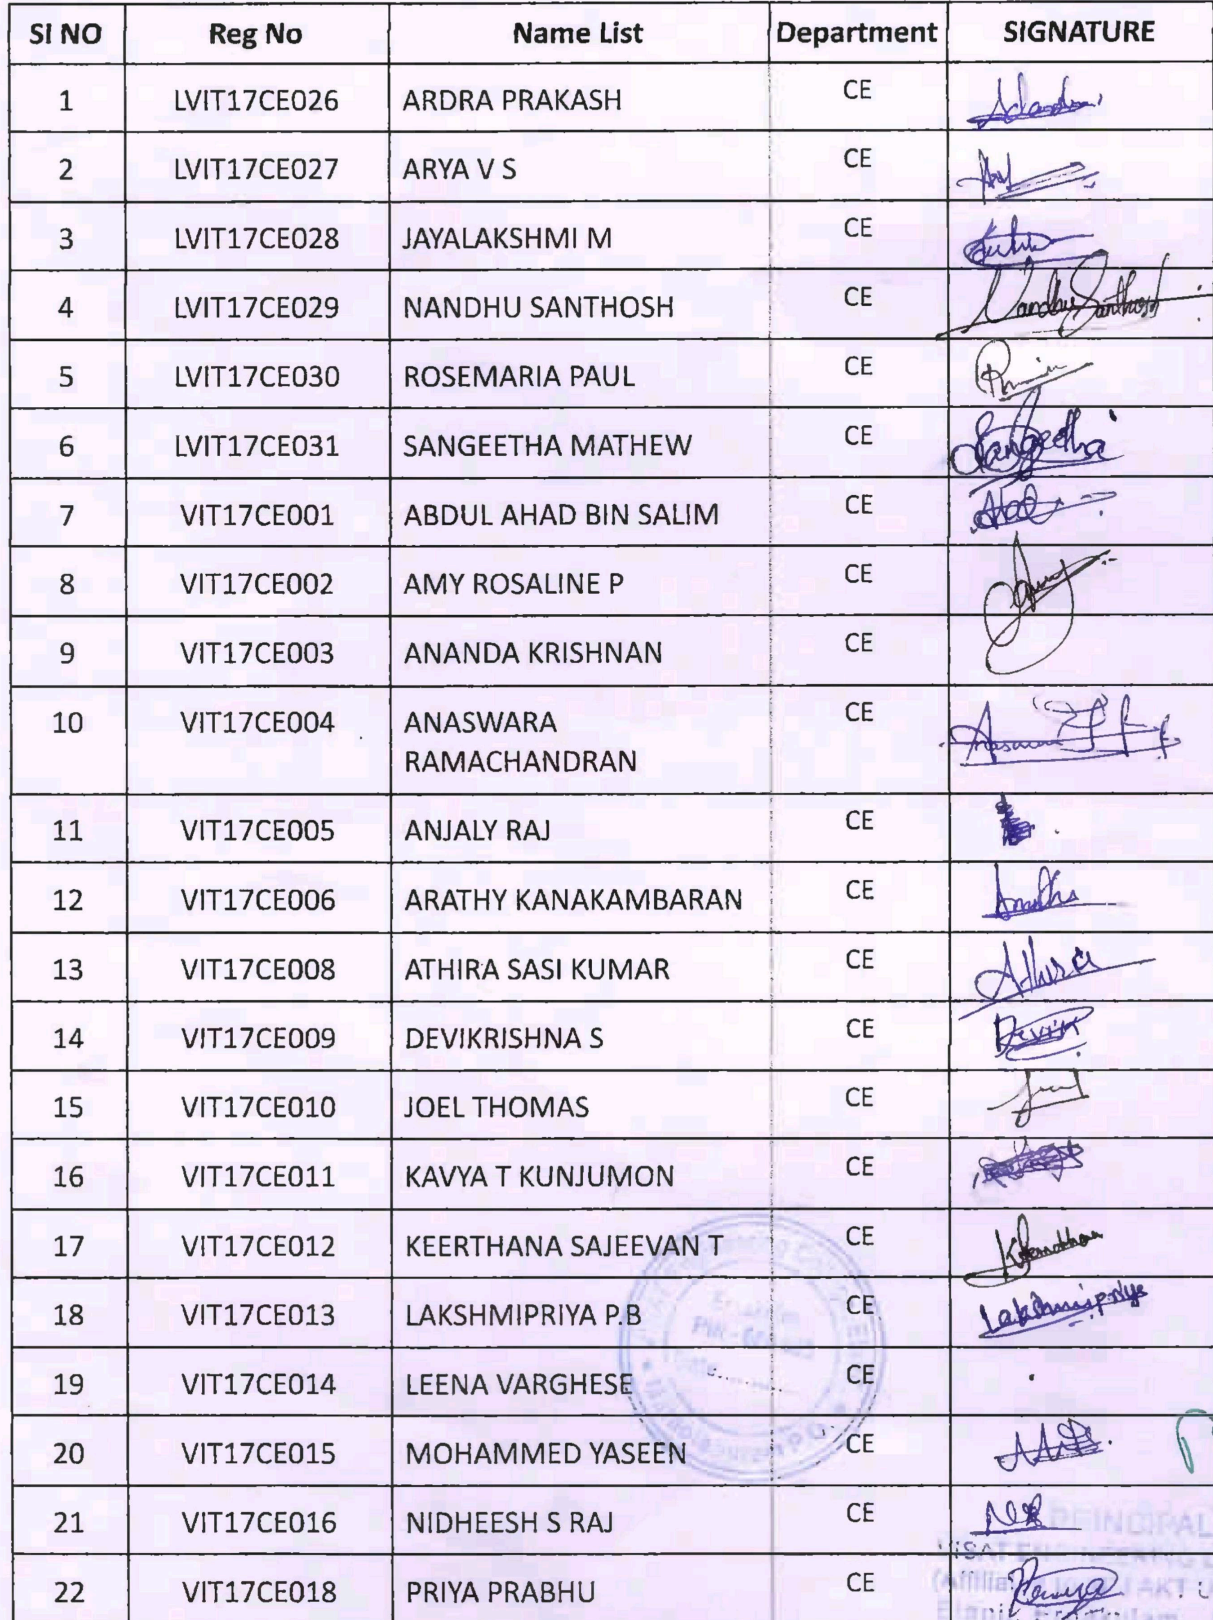 SI NO Reg No Name List Department SIGNATURE
1 LVIT17CE026 ARDRA PRAKASH CE
2 LVIT17CE027 ARYA V S CE
3 LVIT17CE028 JAYALAKSHMI M CE
4 LVIT17CE029 NANDHU SANTHOSH CE Nandhu Santhosh
5 LVIT17CE030 ROSEMARIA PAUL CE
6 LVIT17CE031 SANGEETHA MATHEW CE Sangeetha
7 VIT17CE001 ABDUL AHAD BIN SALIM CE
8 VIT17CE002 AMY ROSALINE P CE
9 VIT17CE003 ANANDA KRISHNAN CE
10 VIT17CE004 ANASWARA CE
RAMACHANDRAN
11 VIT17CE005 ANJALY RAJ CE
12 VIT17CE006 ARATHY KANAKAMBARAN CE
13 VIT17CE008 ATHIRA SASI KUMAR CE Athira
14 VIT17CE009 DEVIKRISHNA S CE
15 VIT17CE010 JOEL THOMAS CE
16 VIT17CE011 KAVYA T KUNJUMON CE
17 VIT17CE012 KEERTHANA SAJEEVAN T CE
18 VIT17CE013 LAKSHMIPRIYA P.B CE Lakshmipriya
19 VIT17CE014 LEENA VARGHESE CE
20 VIT17CE015 MOHAMMED YASEEN CE
21 VIT17CE016 NIDHEESH S RAJ CE
PRINCIPAL
22 VIT17CE018 PRIYA PRABHU CE